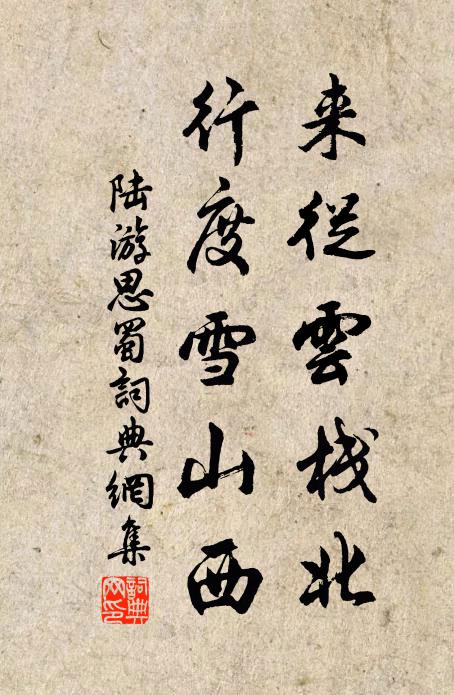 来從雲棧北
行度雪山西
陆游思蜀詞典網集
詞典網印